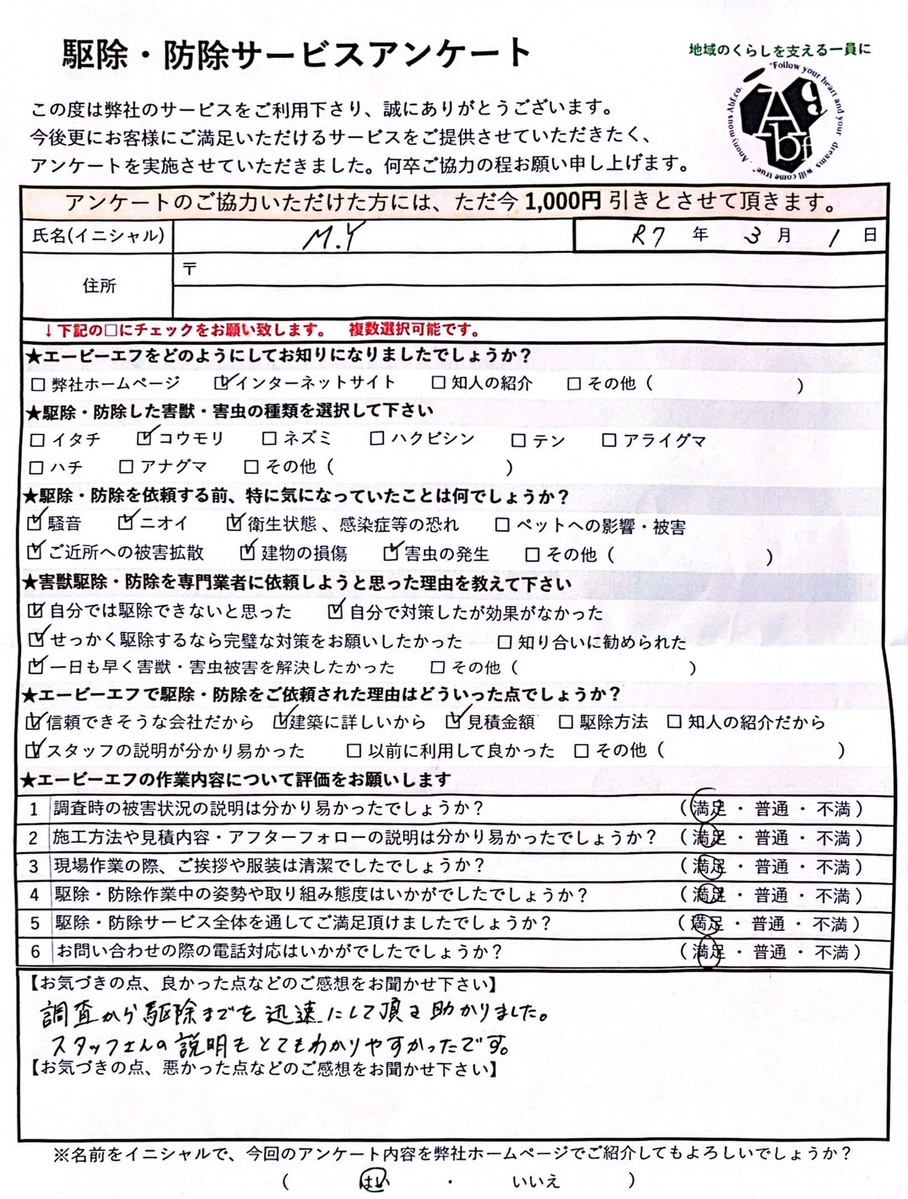 駆除・防除サービスアンケート
地域のくらしを支える一員に
"Follow your heart and your dreams will come true". Anonymous Abf.co.
Abf
この度は弊社のサービスをご利用下さり、誠にありがとうございます。
今後更にお客様にご満足いただけるサービスをご提供させていただきたく、
アンケートを実施させていただきました。何卒ご協力の程お願い申し上げます。
アンケートのご協力いただけた方には、ただ今 1,000円 引きとさせて頂きます。
氏名(イニシャル) M.Y R7 年 3 月 1 日
住所 〒
↓下記の□にチェックをお願い致します。 複数選択可能です。
★エービーエフをどのようにしてお知りになりましたでしょうか?
□ 弊社ホームページ ☑インターネットサイト □ 知人の紹介 □ その他( )
★駆除・防除した害獣・害虫の種類を選択して下さい
□ イタチ ☑コウモリ □ ネズミ □ ハクビシン □ テン □ アライグマ
□ ハチ □ アナグマ □ その他( )
★駆除・防除を依頼する前、特に気になっていたことは何でしょうか?
☑ 騒音 ☑ニオイ ☑衛生状態、感染症等の恐れ □ ペットへの影響・被害
☑ご近所への被害拡散 ☑ 建物の損傷 ☑ 害虫の発生 □ その他( )
★害獣駆除・防除を専門業者に依頼しようと思った理由を教えて下さい
☑自分では駆除できないと思った ☑自分で対策したが効果がなかった
☑せっかく駆除するなら完璧な対策をお願いしたかった □ 知り合いに勧められた
☑一日も早く害獣・害虫被害を解決したかった □ その他( )
★エービーエフで駆除・防除をご依頼された理由はどういった点でしょうか?
☑信頼できそうな会社だから ☑建築に詳しいから ☑見積金額 □ 駆除方法 □ 知人の紹介だから
☑スタッフの説明が分かり易かった □ 以前に利用して良かった □ その他( )
★エービーエフの作業内容について評価をお願いします
1 調査時の被害状況の説明は分かり易かったでしょうか? (満足・普通・不満)
2 施工方法や見積内容・アフターフォローの説明は分かり易かったでしょうか? (満足・普通・不満)
3 現場作業の際、ご挨拶や服装は清潔でしたでしょうか? (満足・普通・不満)
4 駆除・防除作業中の姿勢や取り組み態度はいかがでしたでしょうか? (満足・普通・不満)
5 駆除・防除サービス全体を通してご満足頂けましたでしょうか? (満足・普通・不満)
6 お問い合わせの際の電話対応はいかがでしたでしょうか? (満足・普通・不満)
【お気づきの点、良かった点などのご感想をお聞かせ下さい】
調査から駆除までを迅速にして頂き助かりました。
スタッフさんの説明もとてもわかりやすかったです。
【お気づきの点、悪かった点などのご感想をお聞かせ下さい】
※名前をイニシャルで、今回のアンケート内容を弊社ホームページでご紹介してもよろしいでしょうか?
( はい ・ いいえ )